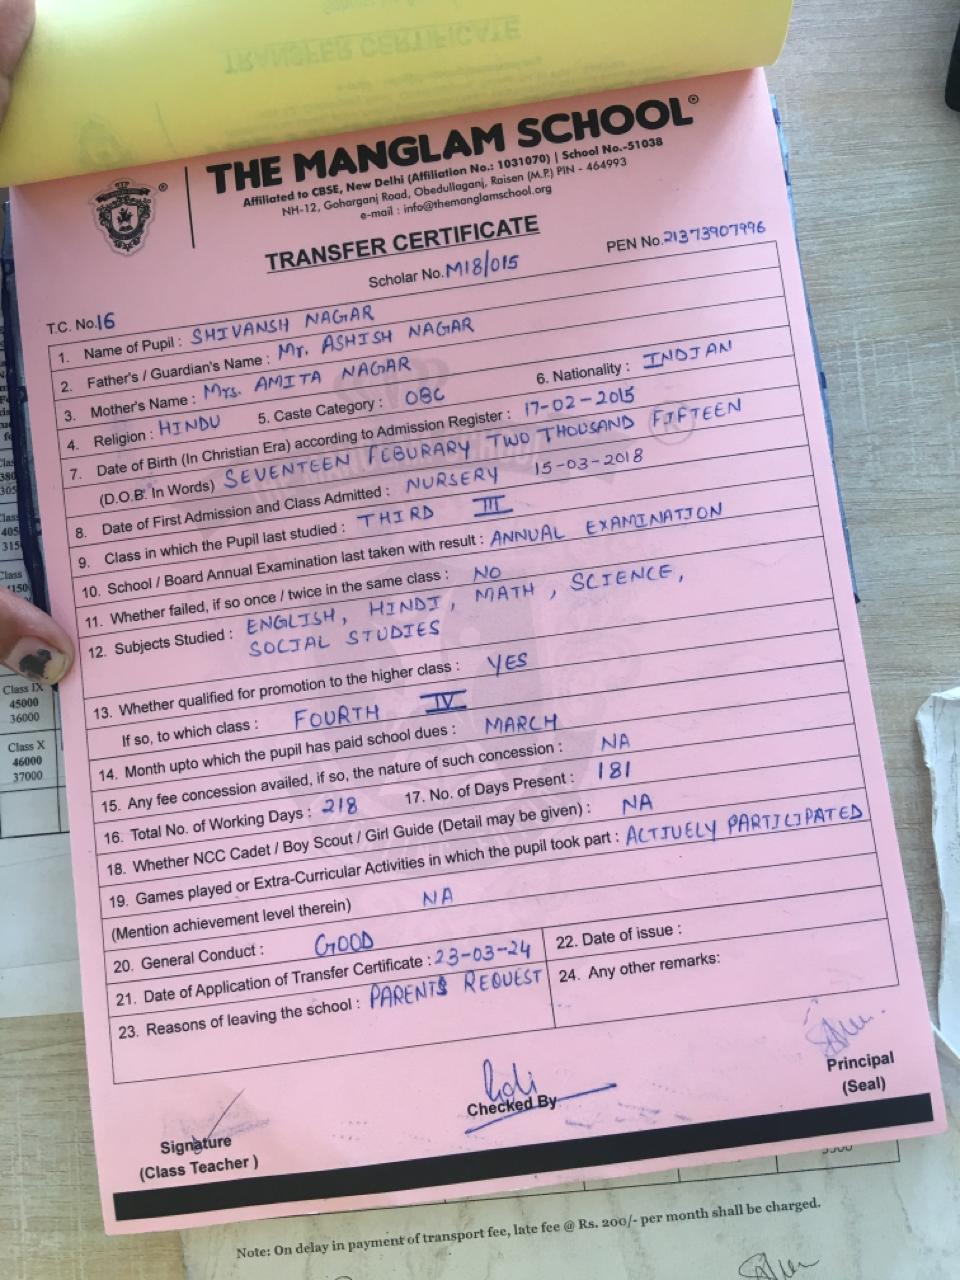 TRANSFER CERTIFICATE
THE MANGLAM SCHOOL®
Affiliated to CBSE, New Delhi (Affiliation No.: 1031070) | School No.-51038
NH-12, Goharganj Road, Obedullaganj, Raisen (M.P.) PIN - 464993
e-mail : info@themanglamschool.org
TRANSFER CERTIFICATE
T.C. No.16 Scholar No.M18/015 PEN No.21373907996
1. Name of Pupil : SHIVANSH NAGAR
2. Father's / Guardian's Name : Mr. ASHISH NAGAR
3. Mother's Name : Mrs. AMITA NAGAR
4. Religion : HINDU 5. Caste Category : OBC 6. Nationality : INDIAN
7. Date of Birth (In Christian Era) according to Admission Register : 17-02-2015
(D.O.B. In Words) SEVENTEEN FEBURARY TWO THOUSAND FIFTEEN
8. Date of First Admission and Class Admitted : NURSERY 15-03-2018
9. Class in which the Pupil last studied : THIRD III
10. School / Board Annual Examination last taken with result : ANNUAL EXAMINATION
11. Whether failed, if so once / twice in the same class : NO
12. Subjects Studied : ENGLISH, HINDI, MATH, SCIENCE,
SOCIAL STUDIES
13. Whether qualified for promotion to the higher class : YES
If so, to which class : FOURTH IV
14. Month upto which the pupil has paid school dues : MARCH
15. Any fee concession availed, if so, the nature of such concession : NA
16. Total No. of Working Days : 218 17. No. of Days Present : 181
18. Whether NCC Cadet / Boy Scout / Girl Guide (Detail may be given) : NA
19. Games played or Extra-Curricular Activities in which the pupil took part : ACTIVELY PARTICIPATED
(Mention achievement level therein) NA
20. General Conduct : GOOD
21. Date of Application of Transfer Certificate : 23-03-24 22. Date of issue :
23. Reasons of leaving the school : PARENTS REQUEST 24. Any other remarks:
Signature
(Class Teacher )
Checked By
Principal
(Seal)
Class IX
45000
36000
Class X
46000
37000
Note: On delay in payment of transport fee, late fee @ Rs. 200/- per month shall be charged.